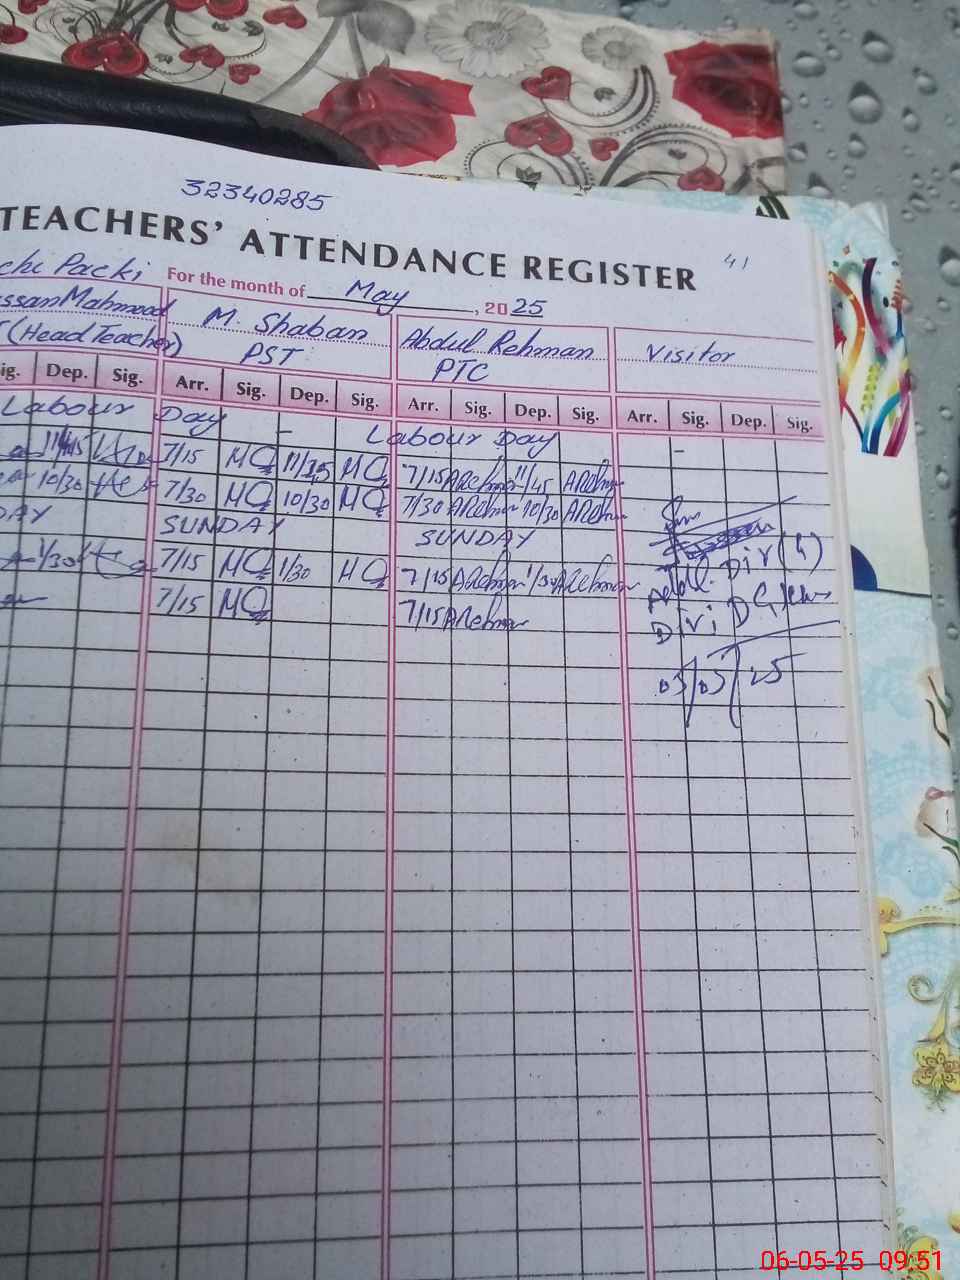 32340285
TEACHERS' ATTENDANCE REGISTER
41
chi Packi For the month of May, 2025
ssan Mahmood M. Shaban Abdul Rehman Visitor
(Head Teacher) PST PTC
ig. Dep. Sig. Arr. Sig. Dep. Sig. Arr. Sig. Dep. Sig. Arr. Sig. Dep. Sig.
Labour Day - Labour Day -
11/45 7/15 MQ 11/45 MQ 7/15 ARehman 11/45 ARehman
10/30 7/30 MQ 10/30 MQ 7/30 ARehman 10/30 ARehman
DAY SUNDAY SUNDAY
1/30 7/15 MQ 1/30 MQ 7/15 ARehman 1/30 ARehman
7/15 MQ 7/15 ARehman
Addl. Dir
05/05/25
06-05-25 09:51